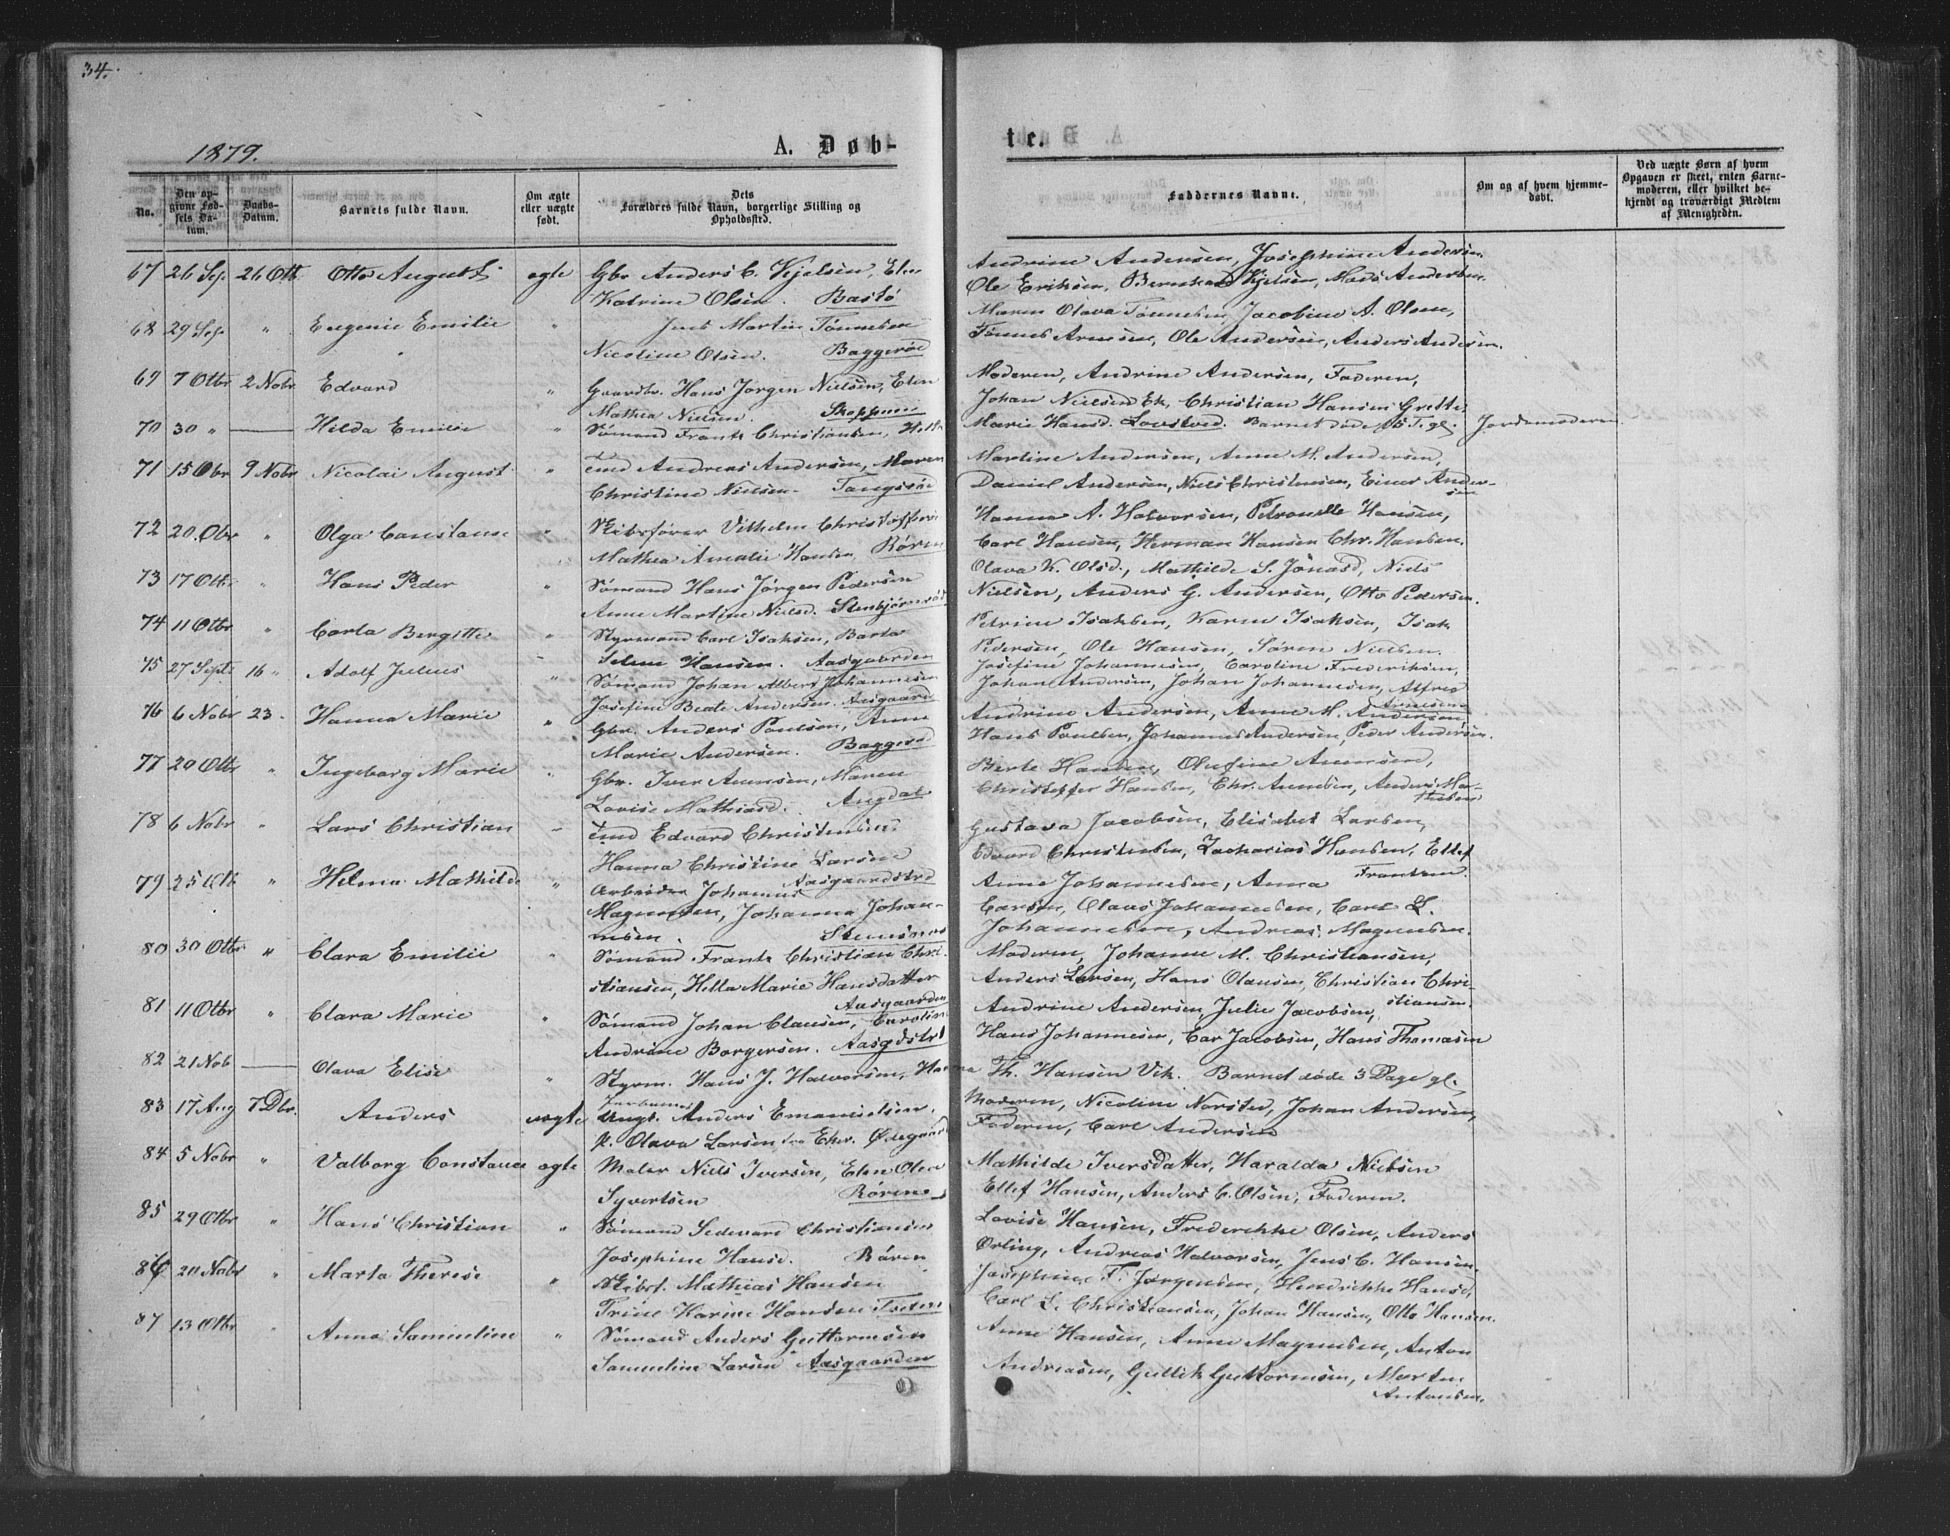 34.
1879.
A. Døb-
te.
No.
Den opgivne Fødsels Datum.
Daabs-Datum.
Barnets fulde Navn.
Om ægte eller uægte født.
Dets Forældres fulde Navn, borgerlige Stilling og Opholdssted.
Faddernes Navne.
Om og af hvem hjemmedøbt.
Ved uægte Børn af hvem Opgaven er skeet, enten Barnemoderen, eller hvilket bekjendt og troværdigt Medlem af Menigheden.
67 26 Sep. 26 Otb Otto August ægte Gbr Anders C. Kjelsen, Elen
Katrine Olsen. Bastø
Andrine Andersen, Josephine Andersen
Ole Eriksen, Bernhard Kjelsen, Mads Andersen
68 29 Sep. " Eugenie Emilie " Jens Martin Tønnesen
Nicoline Olsen. Baggerød
Maren Olava Tønnesen, Jacobine A. Olsen,
Tønnes Arnesen, Ole Andersen, Anders Andersen.
69 7 Otbr 2 Nobr Edvard " Gaardbr. Hans Jørgen Nielsen, Elen
Mathea Nielsen. Skoppum
Moderen, Andrine Andersen, Faderen,
Johan Nielsen Ek, Christian Hansen Grette.
70 30 " Hilda Emilie " Sømand Frantz Christiansen, Hella
Marie Hansd. Lovstved. Barnet døde gl. Jordemoderen
71 15 Obr 9 Nobr Nicolai August " Tmd Andreas Andersen, Maren
Christine Nielsen. Tangsrød
Martine Andersen, Anne M. Andersen,
Daniel Andersen, Niels Christensen, Einer Ander-
sen
72 20. Obr " Olga Constanse " Skibsfører Vilhelm Christoffersen
Mathea Amalie Hansen. Røren
Hanna A. Halvorsen, Petronelle Hansen,
Carl Hansen, Herman Hansen Chr. Hansen.
73 17 Otb " Hans Peder " Sømand Hans Jørgen Pedersen
Anne Martine Nielsd. Stenbjørnsrød
Olava K. Olsd., Mathilde S. Jonasd, Niels
Nielsen, Anders G. Andersen, Otto Pedersen.
74 11 Otbr " Carla Bergitte " Styrmand Carl Isaksen, Berta
Seline Hansen. Aasgaarden
Petrine Isaksen, Karen Isaksen, Isak
Pedersen, Ole Hansen, Søren Nielsen.
75 27 Septr 16 " Adolf Julius " Sømand Johan Albert Johannesen
Josefine Beate Andersen. Aasgaard
Josefine Johannesen, Caroline Frederiksen,
Johan Andersen, Johan Johannesen, Alfred
Arnesen
76 6 Nobr 23. Hanna Marie " Gbr. Anders Poulsen, Anne
Marie Andersen. Baggerød
Andrine Andersen, Anne M. Andersen,
Hans Poulsen, Johannes Andersen, Peder Andersen.
77 20 Otbr " Ingeborg Marie " Gbr. Iver Amundsen, Maren
Lovise Mathiasd. Augdal
Berte Hansen, Olufine Amundsen,
Christoffer Hansen, Chr. Amundsen, Anders Ma-
thisen
78 6 Nobr " Lars Christian " Tmd Edvard Christensen.
Hanna Christine Larsen
Aasgaardstrd
Gustava Jacobsen, Elisabet Larsen,
Edvard Christensen, Zacharias Hansen, Ellef
Frantzen.
79 25 Otb " Helma Mathilde " Arbeider Johannes
Magnussen, Johanna Johan-
nesen. Stensnes
Anne Johannesen, Anna
Larsen, Olaus Johannesen, Carl L.
Johannesen, Andreas Magnussen.
80 30 Otbr " Clara Emilie " Sømand Frantz Christian Chri-
stiansen, Hella Marie Hansdatter
Aasgaarden
Moderen, Johanne M. Christiansen,
Anders Larsen, Hans Olausen, Christian Chri-
stiansen.
81 11 Otbr " Clara Marie " Sømand Johan Clausen, Caroline
Andrine Borgersen. Aasgdstrd
Andrine Andersen, Julie Jacobsen,
Hans Johannesen, Car Jacobsen, Hans Thomasen
82 21 Nob Olava Elise " Styrm. Hans J. Halvorsen, Hanna
Th. Hansen Vik. Barnet døde 3 Dage gl.
83 17 Aug 7 Dbr. Anders uægte Ungk. Anders Emanuelsen,
P. Olava Larsen fra Ødegaard
Moderen, Nicoline Narsted, Johan Andersen,
Faderen, Carl Andersen
84 5 Nobr " Valborg Constance ægte Maler Niels Iversen, Elen Oline
Syvertsen Røren
Mathilde Iversdatter, Haralda Nielsen
Ellef Hansen, Anders C. Olsen, Faderen.
85 29 Otbr " Hans Christian " Sømand Sedevard Christiansen
Josephine Hansd. Røren
Lovise Hansen, Frederikke Olsen, Anders
Ørling, Andreas Halvorsen, Jens C. Hansen.
86 20 Nobr " Marta Therese " Skibsf. Mathias Hansen
Trine Karine Hansen
Josephine F. Jørgensen, Hendrikke Hansd,
Carl L. Christiansen, Johan Hansen, Otto Hansen.
87 13 Otbr " Anna Samueline " Sømand Anders Guttormsen
Samueline Larsen Aasgaarden
Anne Hansen, Anne Magnussen, Anton
Andreasen, Gullik Guttormsen, Morten
Antonsen.